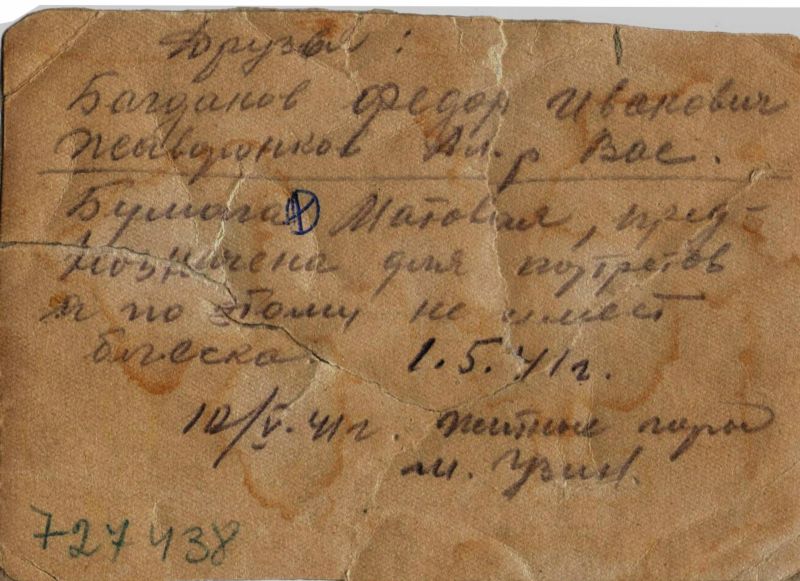 Друзья:
Багданов Федор Иванович
Жаворонков Ал-р Вас.
Бумага Матовая, пред-
назначена для портретов
и по этому не имеет
блеска. 1.5.41г.
10/V.41г. Житные горы
м. Узин.
727438